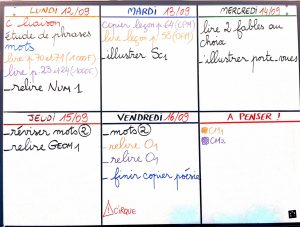 LUNDI 12/09
C liaison
Étude de phrases
mots
lire p 70 et 71 (1000F)
lire p. 23 et 24 (1000F)
_ relire Num 1
MARDI 13/09
copier leçon p 64 (CM)
lire leçon p 56 (OFM)
illustrer Sc1
MERCREDI 14/09
lire 2 fables au
choix
_ illustrer porte_vues
JEUDI 15/09
_ réviser mots ②
_ relire GEOM 1
VENDREDI 16/09
_ mots ②
_ relire O1
_ relire O1
_ finir copier poésie
CIRQUE
A PENSER !
CM1
CM2